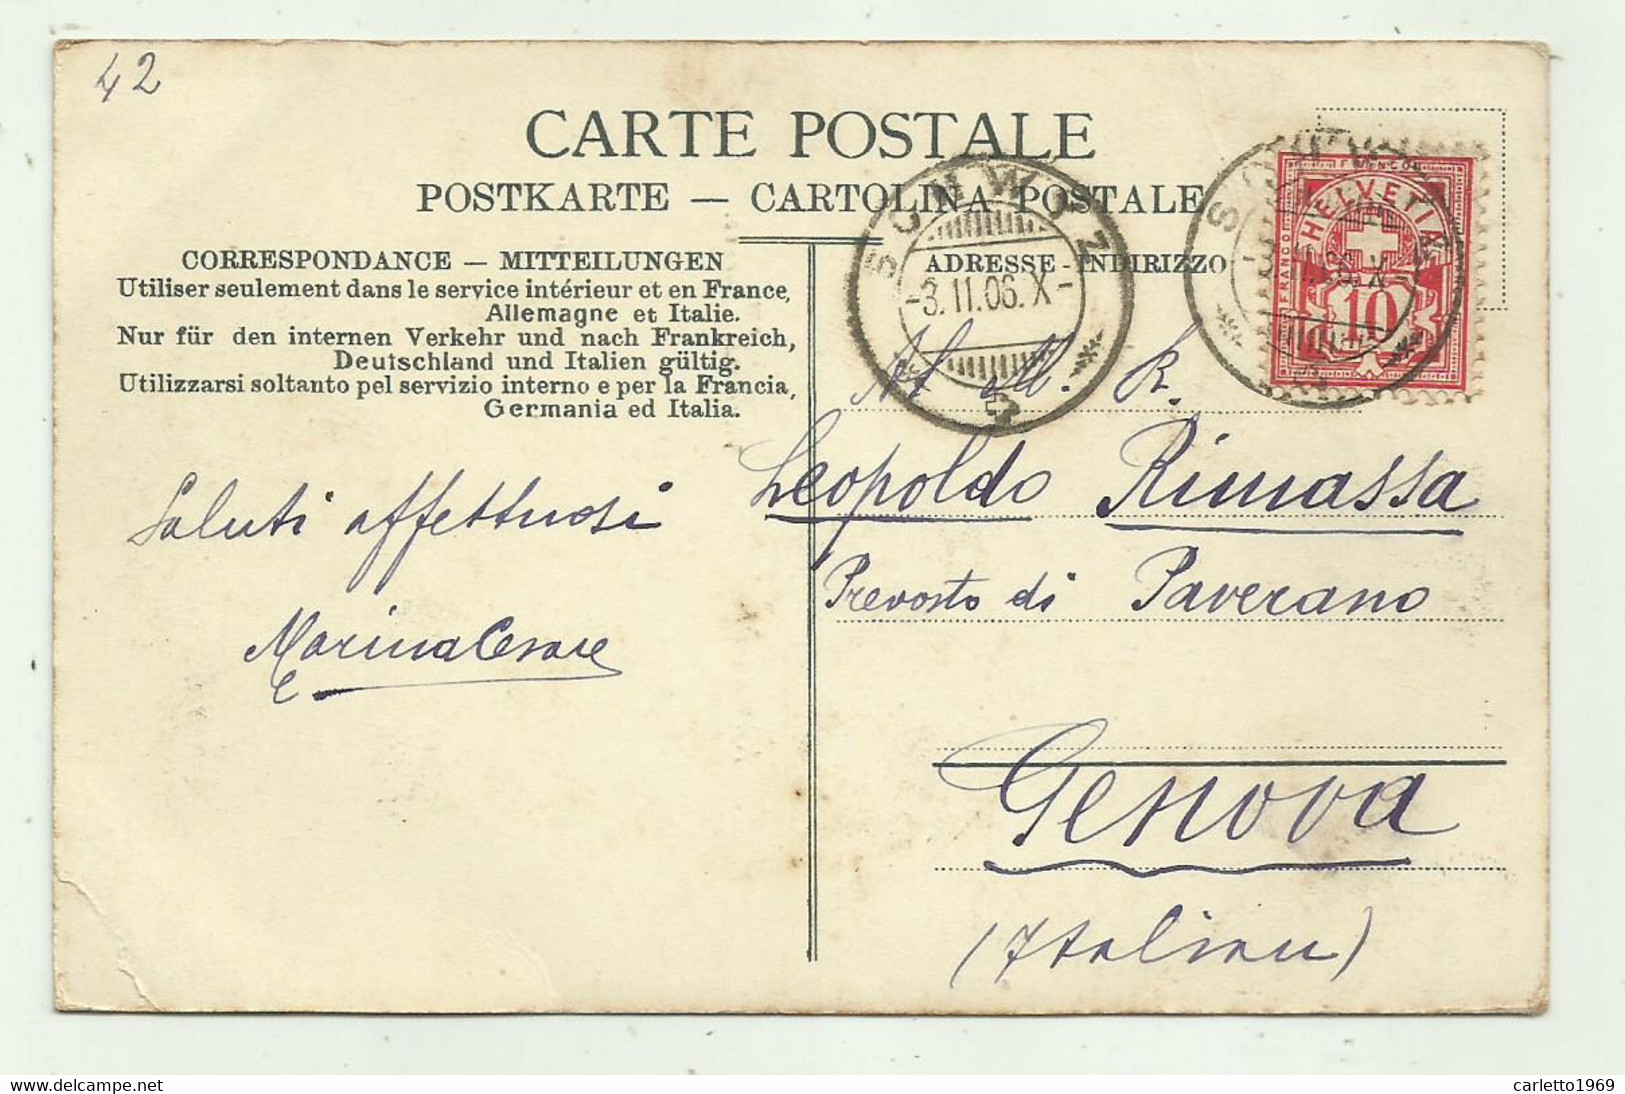 42
CARTE POSTALE
POSTKARTE — CARTOLINA POSTALE
CORRESPONDANCE — MITTEILUNGEN
Utiliser seulement dans le service intérieur et en France,
Allemagne et Italie.
Nur für den internen Verkehr und nach Frankreich,
Deutschland und Italien gültig.
Utilizzarsi soltanto pel servizio interno e per la Francia,
Germania ed Italia.
ADRESSE - INDIRIZZO
SCHWYZ
3.II.06.X
FRANCO
HELVETIA
10
Al M. R.
Leopoldo Rimassa
Prevosto di Paverano
Genova
(Italien)
Saluti affettuosi
Marina Cesare
carletto1969